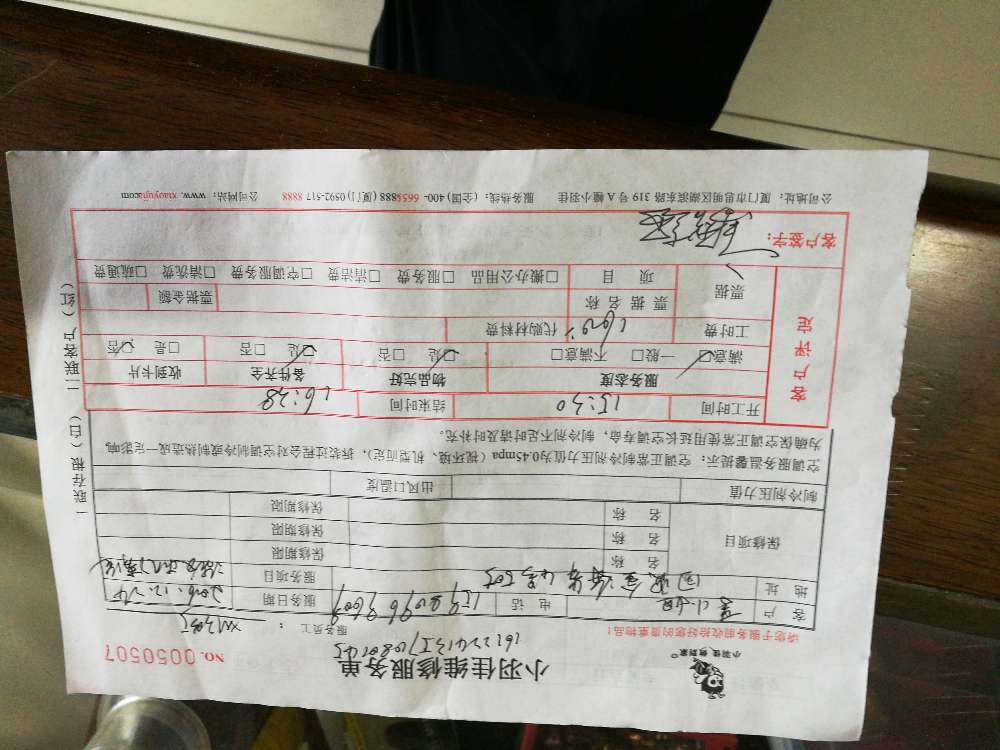 小羽佳 做到家®
小羽佳维修服务单
NO. 0050507
请您于服务前收拾好您的贵重物品!
服务员工:
客户 电话 服务日期 2016.12.24
地址 服务项目
保修项目 名称 保修期限
名称 保修期限
名称 保修期限
制冷剂压力值 出风口温度
空调服务温馨提示:空调正常制冷剂压力值为0.45mpa(视环境、机型而定),拆装过程会对空调制冷或制热造成一定影响,
为确保空调正常使用延长空调寿命,制冷剂不足时请及时补充。
客户评定
开工时间 15:30 结束时间 16:38
服务态度 物品完好 备件齐全 收到卡片
满意☑ 一般□ 不满意□ ☑是 □否 ☑是 □否 □是 ☑否
工时费 代购材料费
票据 票据名称 票据金额
项目 □搬办公用品 □服务费 □清洁费 □空调服务费 □清洗费 □疏通费
客户签字:
公司地址:厦门市思明区湖滨东路319号A幢小羽佳 服务热线:(全国)400-6658888(厦门)0592-517 8888 公司网站:www.xiaoyujia.com
一联存根(白) 二联客户(红)